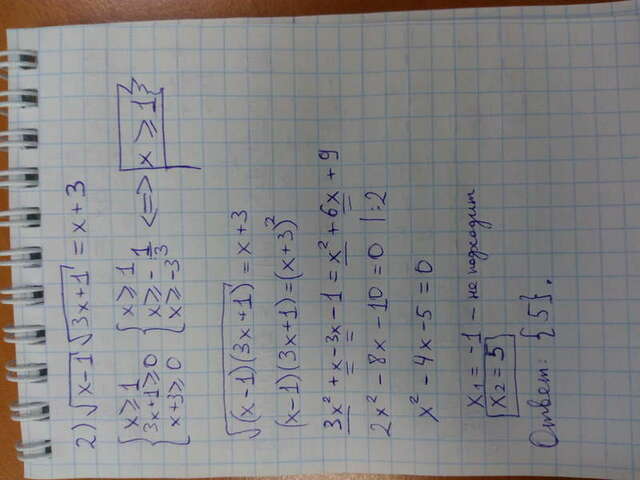 2) √x-1 √3x+1 = x+3
{ x ≥ 1 { x ≥ 1
3x+1 ≥ 0 x ≥ -1/3 <=> x ≥ 1
x+3 ≥ 0 x ≥ -3
√(x-1)(3x+1) = x+3
(x-1)(3x+1) = (x+3)²
3x² + x - 3x - 1 = x² + 6x + 9
2x² - 8x - 10 = 0 | :2
x² - 4x - 5 = 0
x₁ = -1 - не подходит
x₂ = 5
Ответ: {5}.